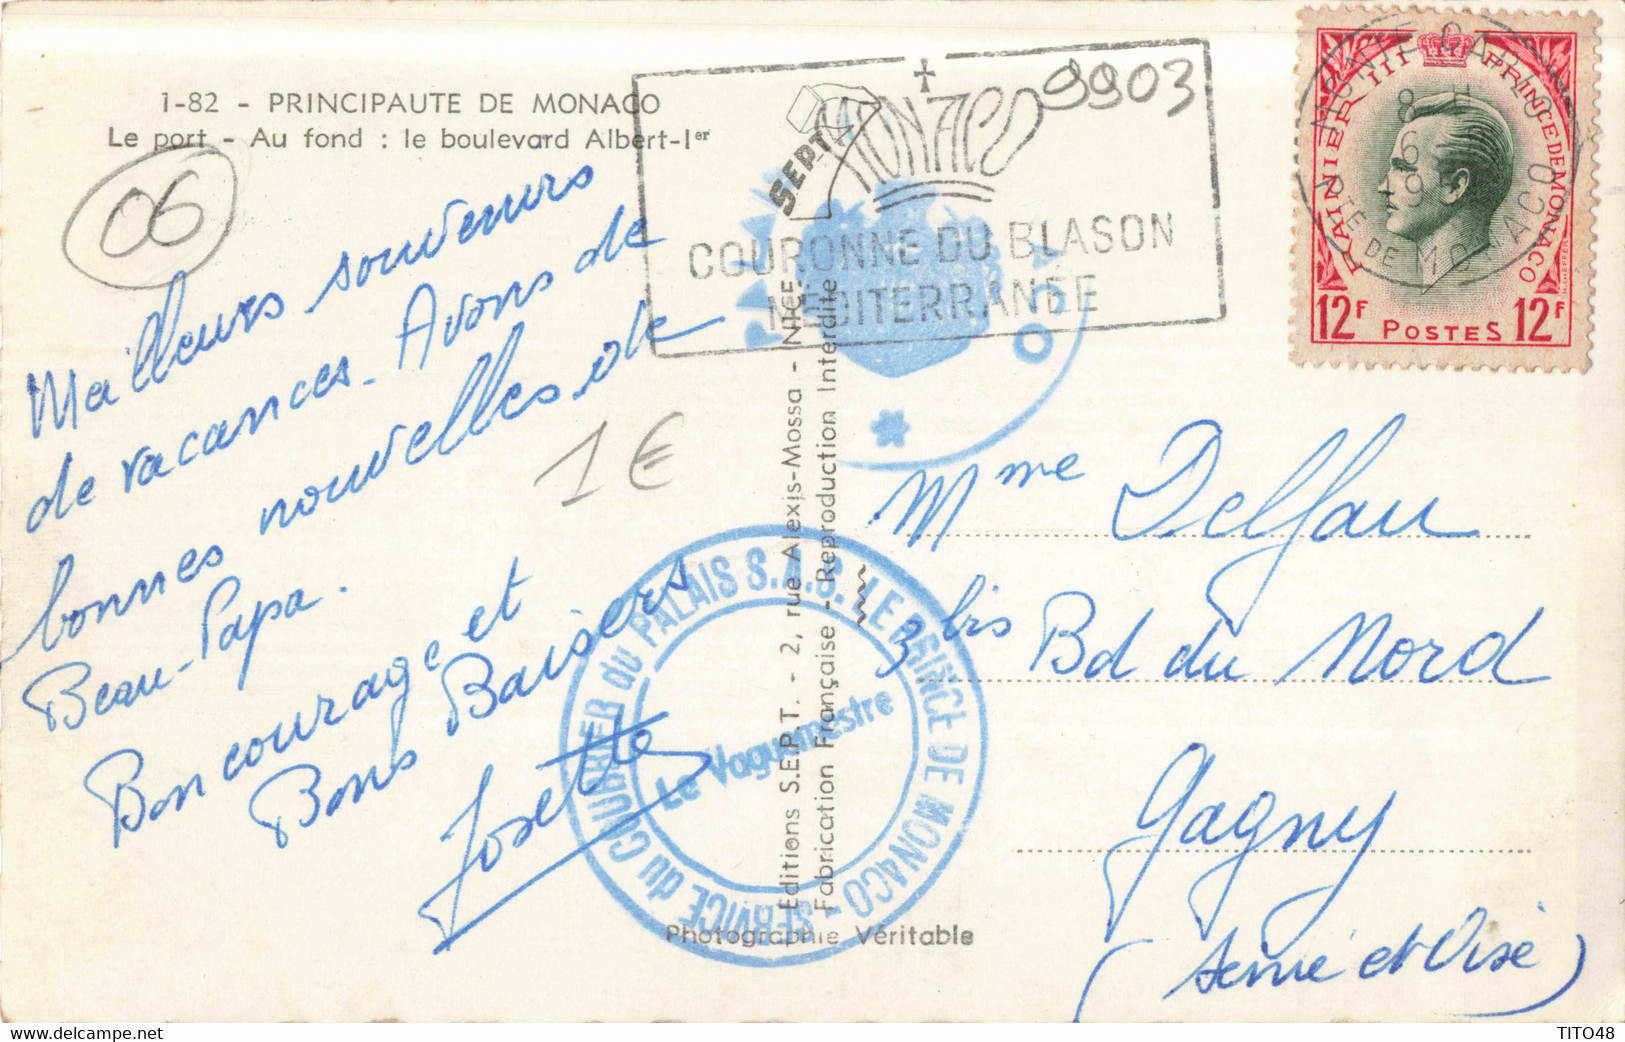 1-82 - PRINCIPAUTE DE MONACO
Le port - Au fond : le boulevard Albert-Ier
06
Meilleurs souvenirs
de vacances. Avons de
bonnes nouvelles de
Beau-Papa.
Bon courage et
Bons Baisers
Josette
1€
9903
MONACO
COURONNE DU BLASON
MEDITERRANÉE
SEPT
Editions S.E.P.T. - 2, rue Alexis-Mossa - NICE
Fabrication Française - Reproduction Interdite
Photographie Véritable
SERVICE du COURRIER du PALAIS S.A.S. LE PRINCE DE MONACO
Le Vaguemestre
MONTE CARLO
PTE DE MONACO
RAINIER III PRINCE DE MONACO
12F POSTES 12F
Mme Delfau
3bis Bd du Nord
Gagny
(Seine et Oise)
TITO48